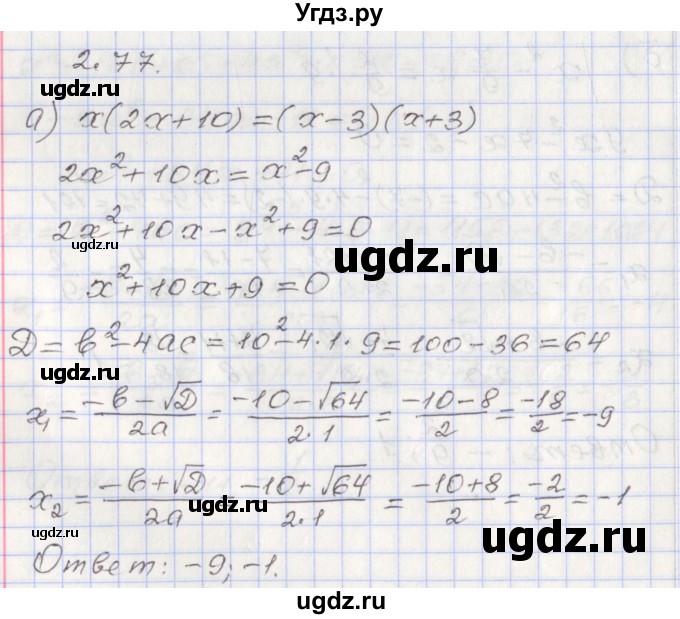 Угдз.ру
2.77.
ugdz.ru
а) x(2x+10)=(x-3)(x+3)
2x²+10x=x²-9
2x²+10x-x²+9=0
ugdz.ru
x²+10x+9=0
D=b²-4ac=10²-4·1·9=100-36=64
ugdz.ru
x₁=(-b-√D)/2a=(-10-√64)/2·1=(-10-8)/2=-18/2=-9
x₂=(-b+√D)/2a (-10+√64)/2·1=(-10+8)/2=-2/2=-1
ugdz.ru
ugdz.ru
ugdz.ru
Ответ: -9; -1.
ugdz.ru
ugdz.ru